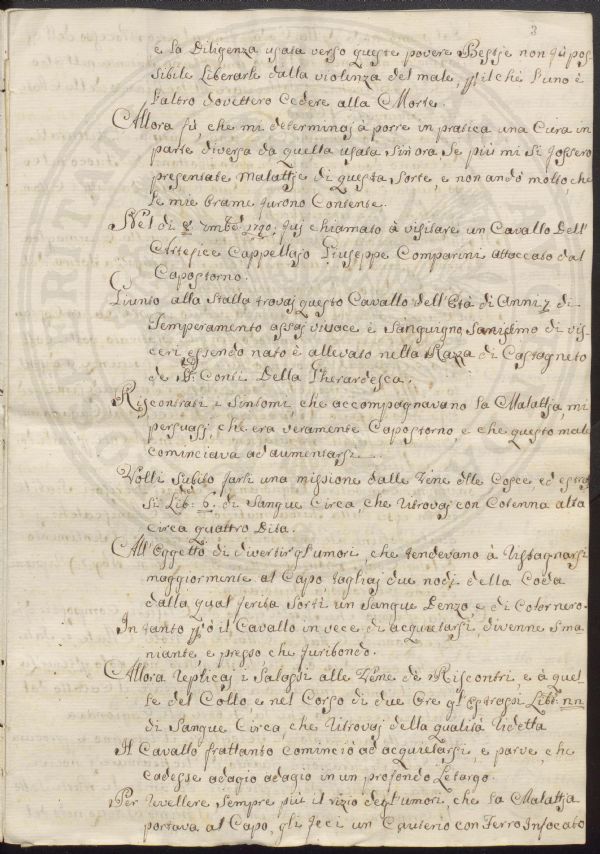 3
e la Diligenza usata verso queste povere Bestje non fù pos-
sibile liberarle dalla violenza del male, il chè l'uno è
l'altro dovettero Cedere alla Morte.
Allora fù, che mi determinaj à porre in pratica una Cura in
parte diversa da quella usata sin'ora se più mi si fossero
presentate Malattje di questa sorte, e non andò molto, che
le mie brame furono Contente.
Nel di 8. 1790. fuj chiamato à visitare un Cavallo Dell'
Artefice Cappellajo Giuseppe Comparini attaccato dal
Capostorno.
Giunto alla stalla trovaj questo Cavallo dell'Età di Anni 7 di
Temperamento assaj vivace è Sanguigno, Sanissimo di vis-
ceri essendo nato è allevato nella Razza di Castagneto
de SS:ri Conti Della Gherardesca.
Riscontrati i Sintomi, che accompagnavano la Malattja mi
persuasi, che era veramente Capostorno, e che questo male
cominciava ad aumentarsi.
Volli subito farli una missione dalle Vene dlle Cosce ed estras-
si Lib: 6. di Sangue Circa, che ritrovaj con Cotenna alta
circa quattro Dita.
All'Oggetto di divertir gl'umori, che tendevano à ristagnarsi
maggiormente al Capo, tagliaj due nodi della Coda
dalla qual ferita sortì un Sangue Denzo, e di Color nero.
In tanto però il Cavallo in vece di acquietarsi divenne sma-
niante, e presso che furibondo.
Allora replicaj i Salassi alle Vene dè Riscontri e à quel-
le del Collo, e nel Corso di due Ore gl'estrassi Libr:
di Sangue Circa, che ritrovaj della qualità ridetta
Il Cavallo frattanto cominciò ad acquietarsi, e parve, che
cadesse adagio adagio in un profondo Letargo.
Per revellere sempre più il vizio degl'umori, che la Malattja
portava al Capo, gli feci un Cauterio con Ferro Infocato